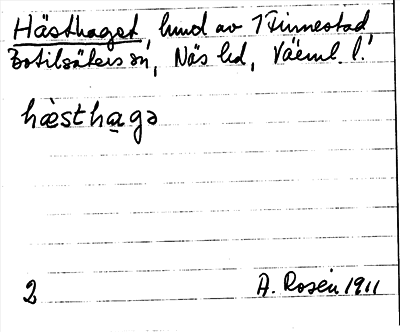 Hästhaget, hmd av 1 Finnestad,
Botilsäters sn, Näs hd, Värml. l.
hæ̀stha̠gə
2 A. Rosén 1911